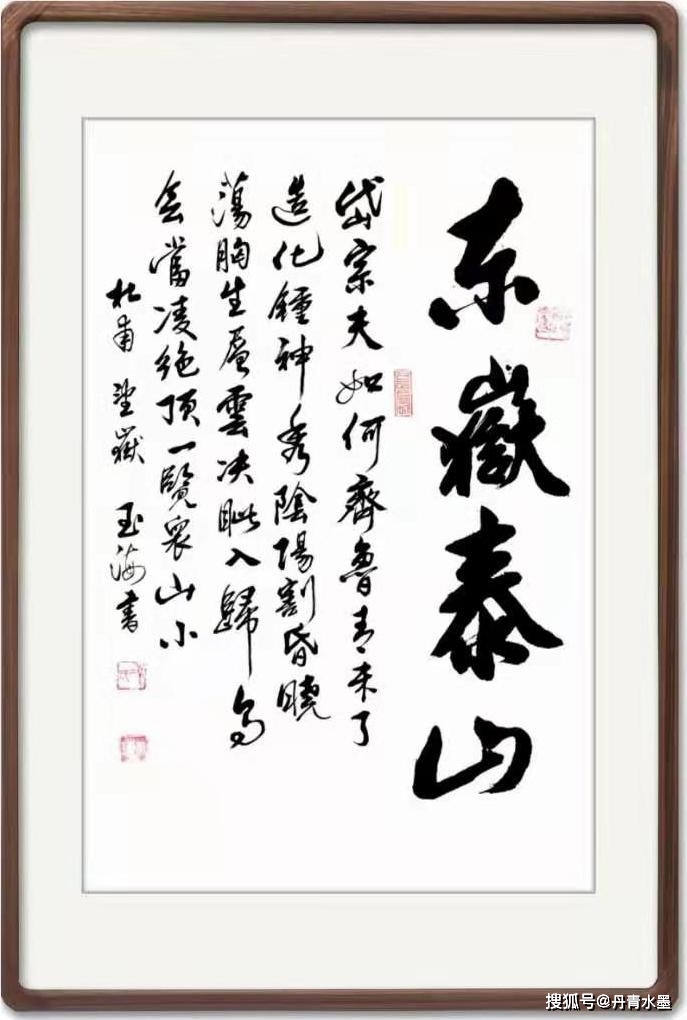 东嶽泰山
岱宗夫如何齊魯青未了
造化鍾神秀陰陽割昏曉
蕩胸生層雲决眦入歸鸟
会當凌绝顶一覽衆山小
杜甫望嶽 玉海書
搜狐号@丹青水墨